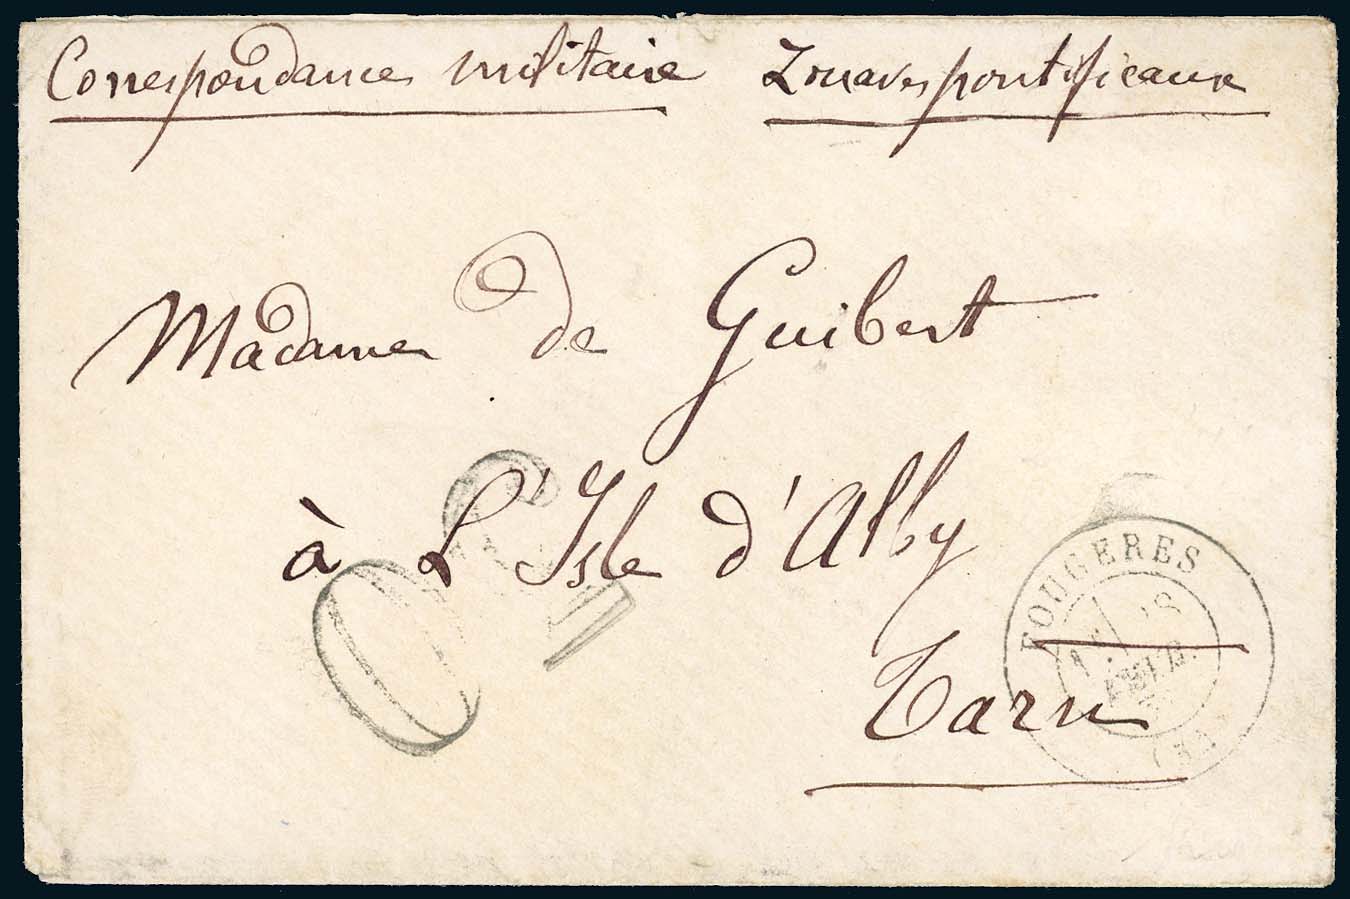 Correspondance militaire Zouaves pontificaux
Madame de Guibert
à L'Isle d'Alby
Tarn
30
FOUGERES
1E/
18
FEVR.